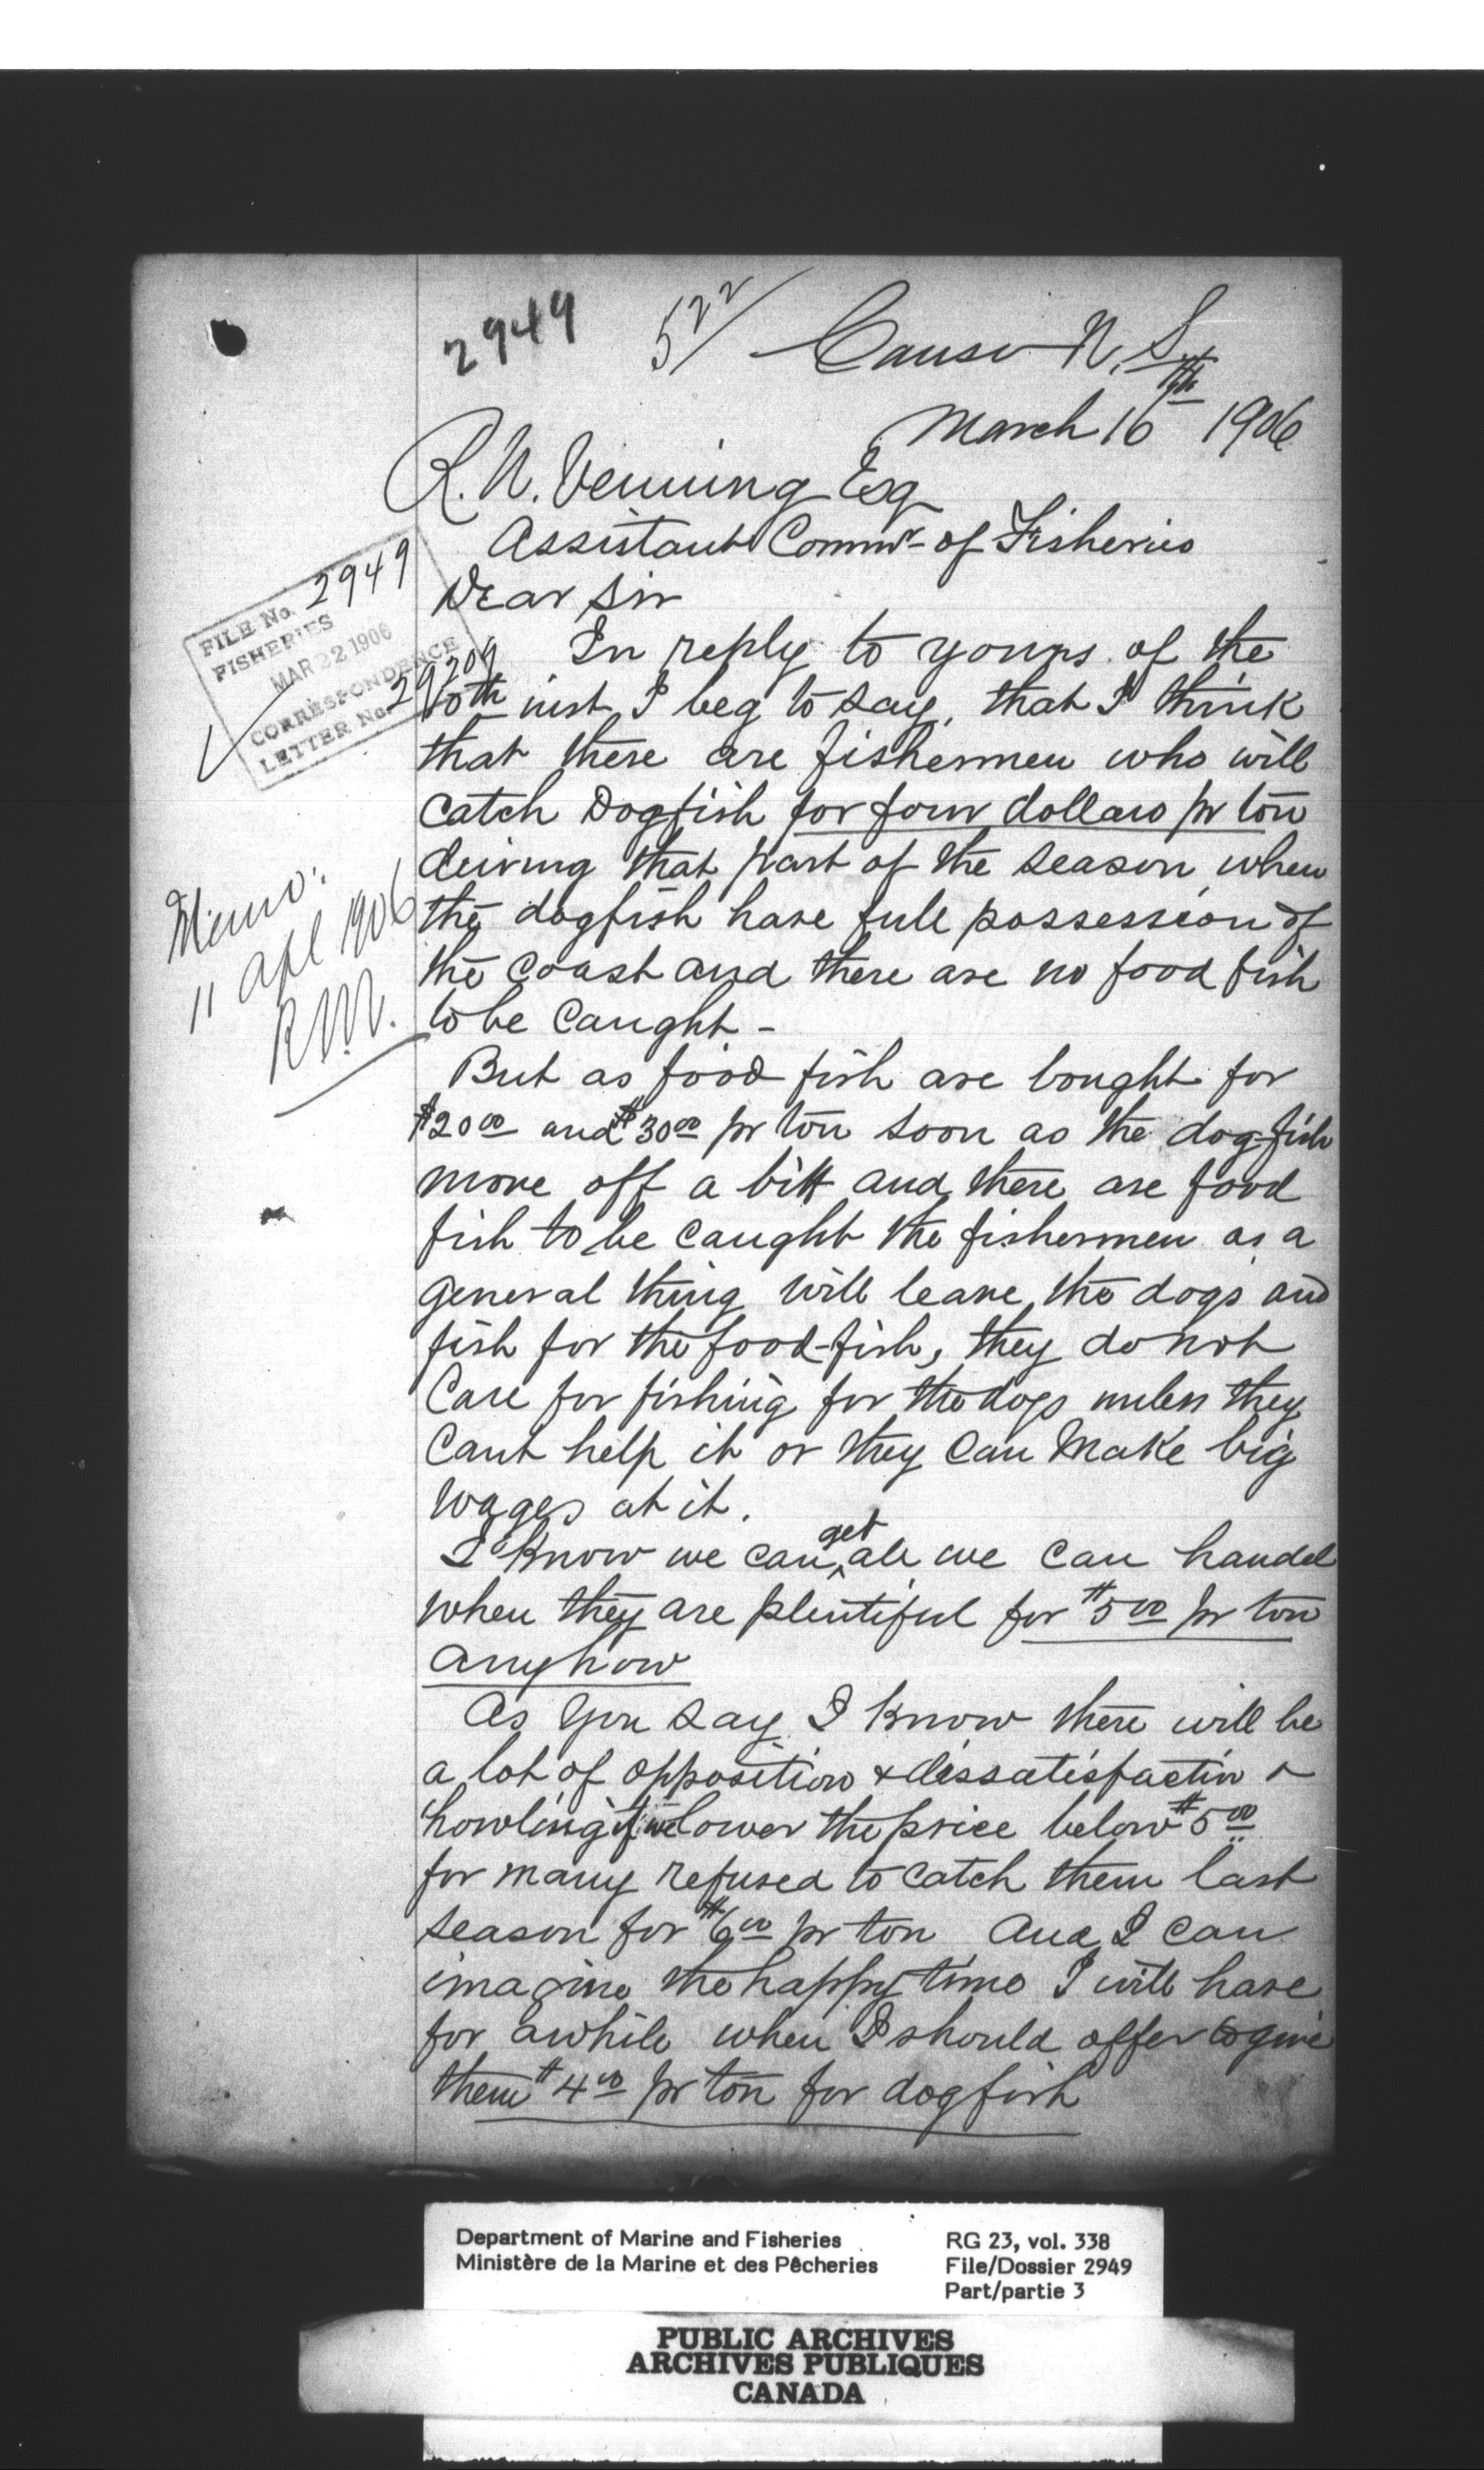 2949 522/ Canso N.S.
March 16th 1906
R. N. Venning Esq
Assistant Commr of Fisheries
Dear Sir
FILE No. 2949
FISHERIES
MAR 22 1906
CORRESPONDENCE
LETTER No. 29209
In reply to yours of the
10th inst I beg to say, that I think
that there are fishermen who will
catch Dogfish for four dollars pr ton
during that part of the season when
the dogfish have full possession of
the coast and there are no food fish
to be caught -
Memo:
11 Apl 1906
But as food fish are bought for
$20.00 and $30.00 pr ton soon as the dog-fish
move off a bitt and there are food
fish to be caught the fishermen as a
general thing will leave the dogs and
fish for the food-fish, they do not
Care for fishing for the dogs unless they
Cant help it or they can Make big
wages at it.
I Know we can get all we can handel
when they are plentiful for $5.00 pr ton
anyhow
As you say I know there will be
a lot of opposition & dissatisfaction &
howling if we lower the price below $5.00
for many refused to catch them last
season for $6.00 pr ton And I can
imagine the happy time I will have
for awhile when I should offer to give
them $4.00 pr ton for dogfish
Department of Marine and Fisheries
Ministère de la Marine et des Pêcheries
RG 23, vol. 338
File/Dossier 2949
Part/partie 3
PUBLIC ARCHIVES
ARCHIVES PUBLIQUES
CANADA